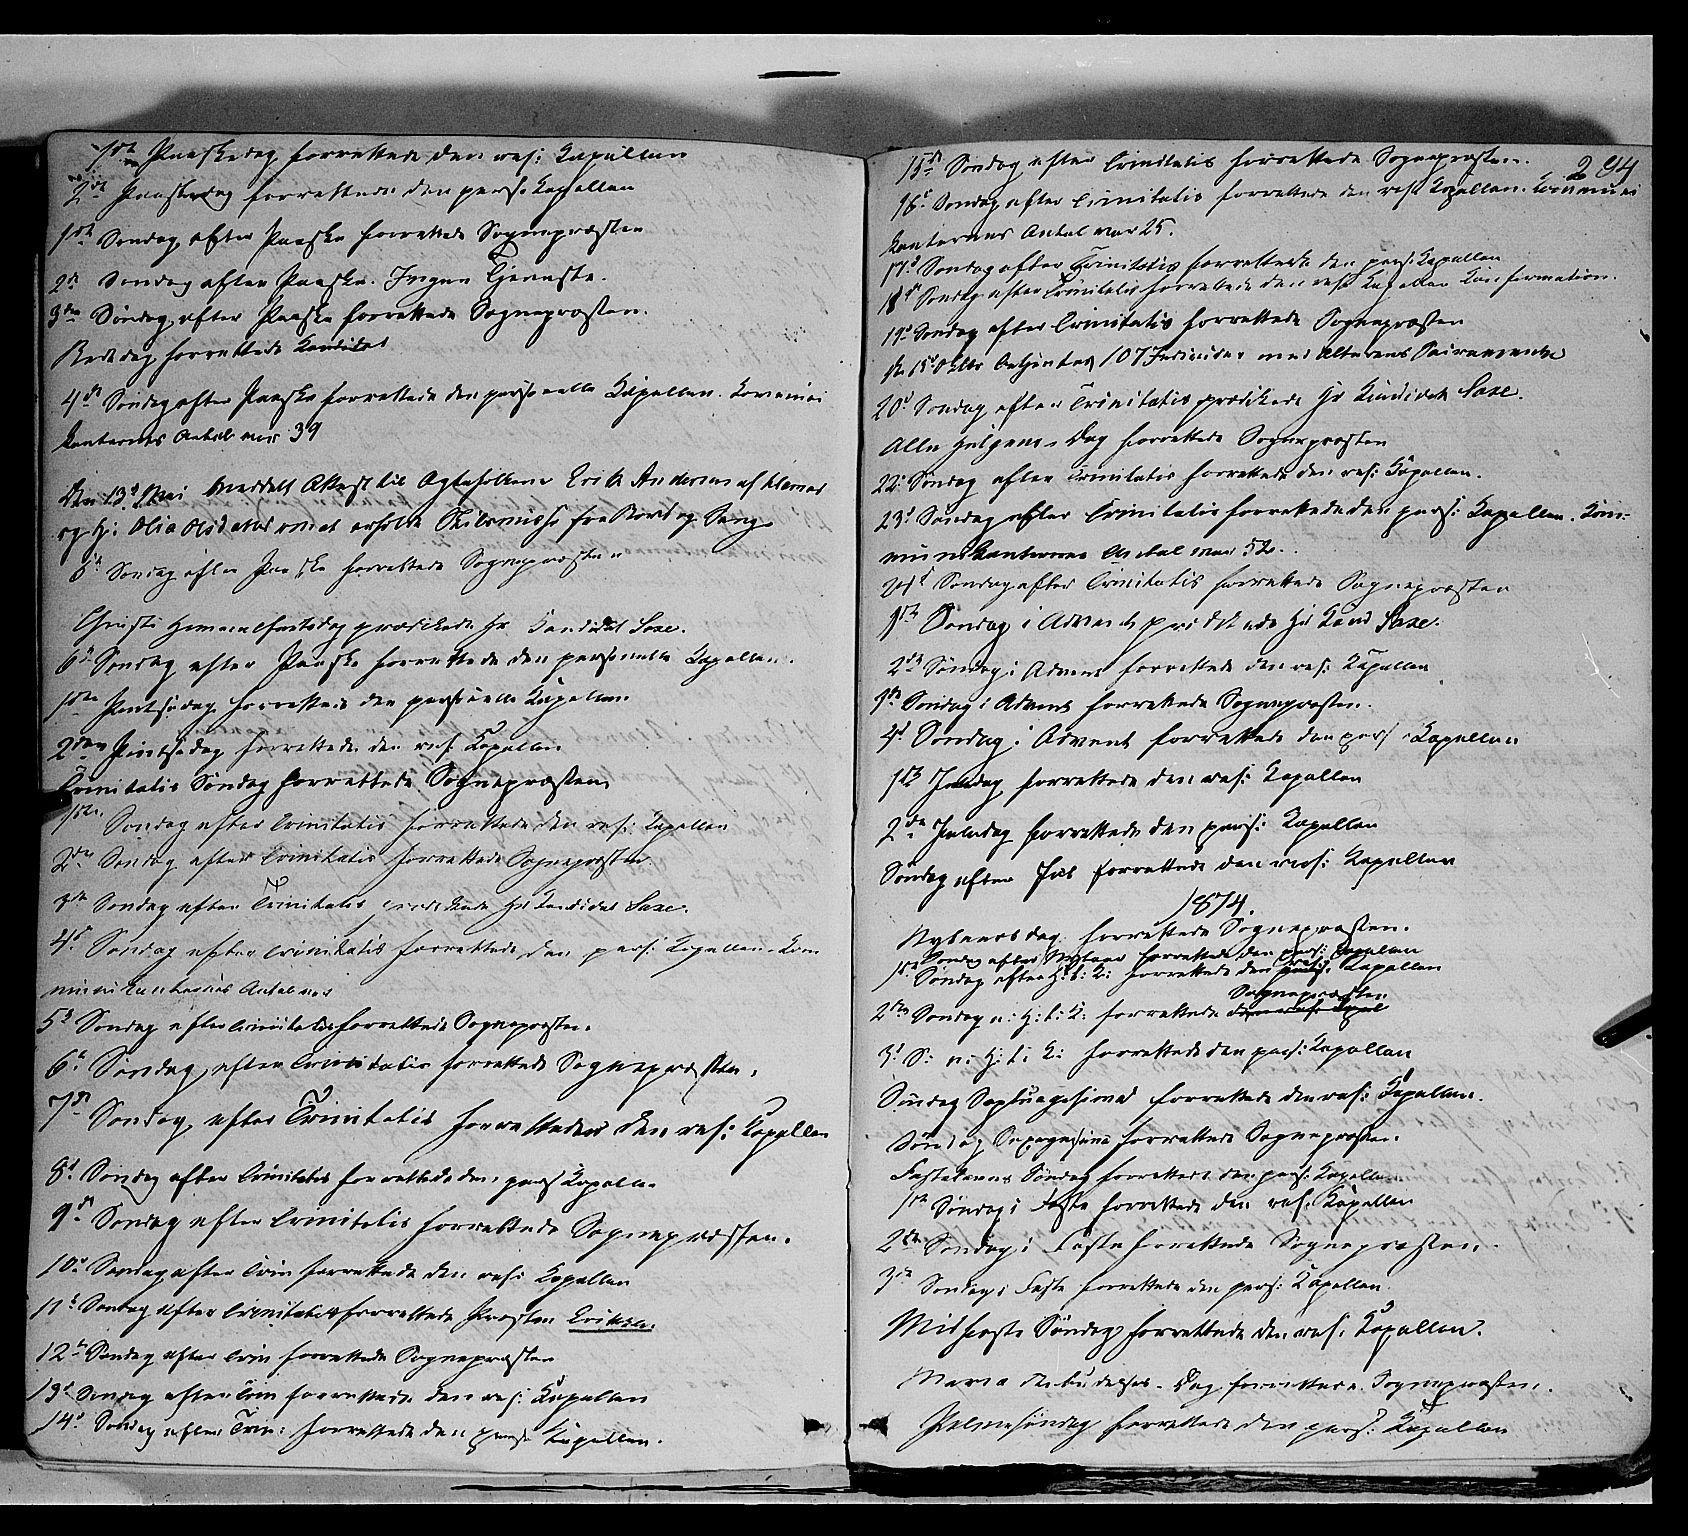 1ste Paaskedag forrettede den res: Kapellan
2de Paaskedag forrettede den pers: Kapellan
1ste Søndag efter Paaske forrettede Sognepræsten
2d Søndag efter Paaske. Ingen Tjeneste.
3die Søndag efter Paaske forrettede Sognepræsten.
Bededag forrettede Kandidat
4d Søndag efter Paaske forrettede den personelle Kapellan. Kommuni
kanternes Antal var 39
Den 13d Mai meddelt Attest til Ægtefolkene Erik Andersen af
og H: Olia Olsdatter om at erholde Skilsmisse fra Bord og Seng.
5d Søndag efter Paaske forrettede Sognepræsten
Christi Himmelfartsdag prædikede Hr Kandidat Saxe.
6d Søndag efter Paaske forrettede den personelle Kapellan.
1ste Pintsedag forrettede den personelle Kapellan.
2den Pintsedag forrettede den res: Kapellan
Trinitatis Søndag forrettede Sognepræsten
1ste Søndag efter Trinitatis forrettede den res: Kapellan
2den Søndag efter Trinitatis forrettede Sognepræsten
3die Søndag efter Trinitatis prædikede Hr Kandidat Saxe.
4d Søndag efter Trinitatis forrettede den pers: Kapellan. Kom
munikanternes Antal var
5d Søndag efter Trinitatis forrettede Sognepræsten.
6d Søndag efter Trinitatis forrettede Sognepræsten.
7d Søndag efter Trinitatis forrettede den res: Kapellan
8d Søndag efter Trinitatis forrettede den pers Kapellan
9d Søndag efter Trinitatis forrettede Sognepræsten.
10d Søndag efter Trin forrettede den res: Kapellan
11d Søndag efter Trinitatis forrettede Præsten Eriksen.
12d Søndag efter Trin forrettede Sognepræsten
13d Søndag efter Trin forrettede den res: Kapellan
14d Søndag efter Trin: forrettede den pers: Kapellan.
294
15de Søndag efter Trinitatis forrettede Sognepræsten.
16d Søndag efter Trinitatis forrettede den res: Kapellan. Kommuni
kanternes Antal var 25.
17d Søndag efter Trinitatis forrettede den pers: Kapellan
18d Søndag efter Trinitatis forrettede den res: Kapellan Konfirmation.
19d Søndag efter Trinitatis forrettede Sognepræsten
D. 15d Oktbr betjentes 107 Individer med Alterens Sacramente
20d Søndag efter Trinitatis prædikede Hr Kandidat Saxe.
Alle Helgens Dag forrettede Sognepræsten
22d Søndag efter Trinitatis forrettede den res: Kapellan.
23d Søndag efter Trinitatis forrettede den pers: Kapellan. Kom-
munikanternes Antal var 52.
24d Søndag efter Trinitatis forrettede Sognepræsten
1ste Søndag i Advent prædikede Hr Kand Saxe.
2den Søndag i Advent forrettede den res: Kapellan
3die Søndag i Advent forrettede Sognepræsten.
4d Søndag i Advent forrettede den pers: Kapellan
1ste Juledag forrettede den res: Kapellan
2den Juledag forrettede den pers: Kapellan
Søndag efter Jul forrettede den res: Kapellan
1874.
Nytaarsdag forrettede Sognepræsten.
Søndag efter Nytaar forrettede den pers: Kapellan
1ste Søndag efter H: t: K: forrettede den res: Kapellan
Sognepræsten
2den Søndag e: H: t: K: forrettede den res: Kapel
3d S: e: H: t: K: forrettede den pers: Kapellan
Søndag Septuagesima forrettede den res: Kapellan.
Søndag Sexagesima forrettede Sognepræsten.
Fastelavns Søndag forrettede den pers: Kapellan
1ste Søndag i Faste forrettede den res: Kapellan
2den Søndag i Faste forrettede Sognepræsten.
3die Søndag i Faste forrettede den pers: Kapellan.
Midfaste Søndag forrettede den res: Kapellan.
Maria Bebudelses-Dag forrettede Sognepræsten.
Palmesøndag forrettede den pers: Kapellan